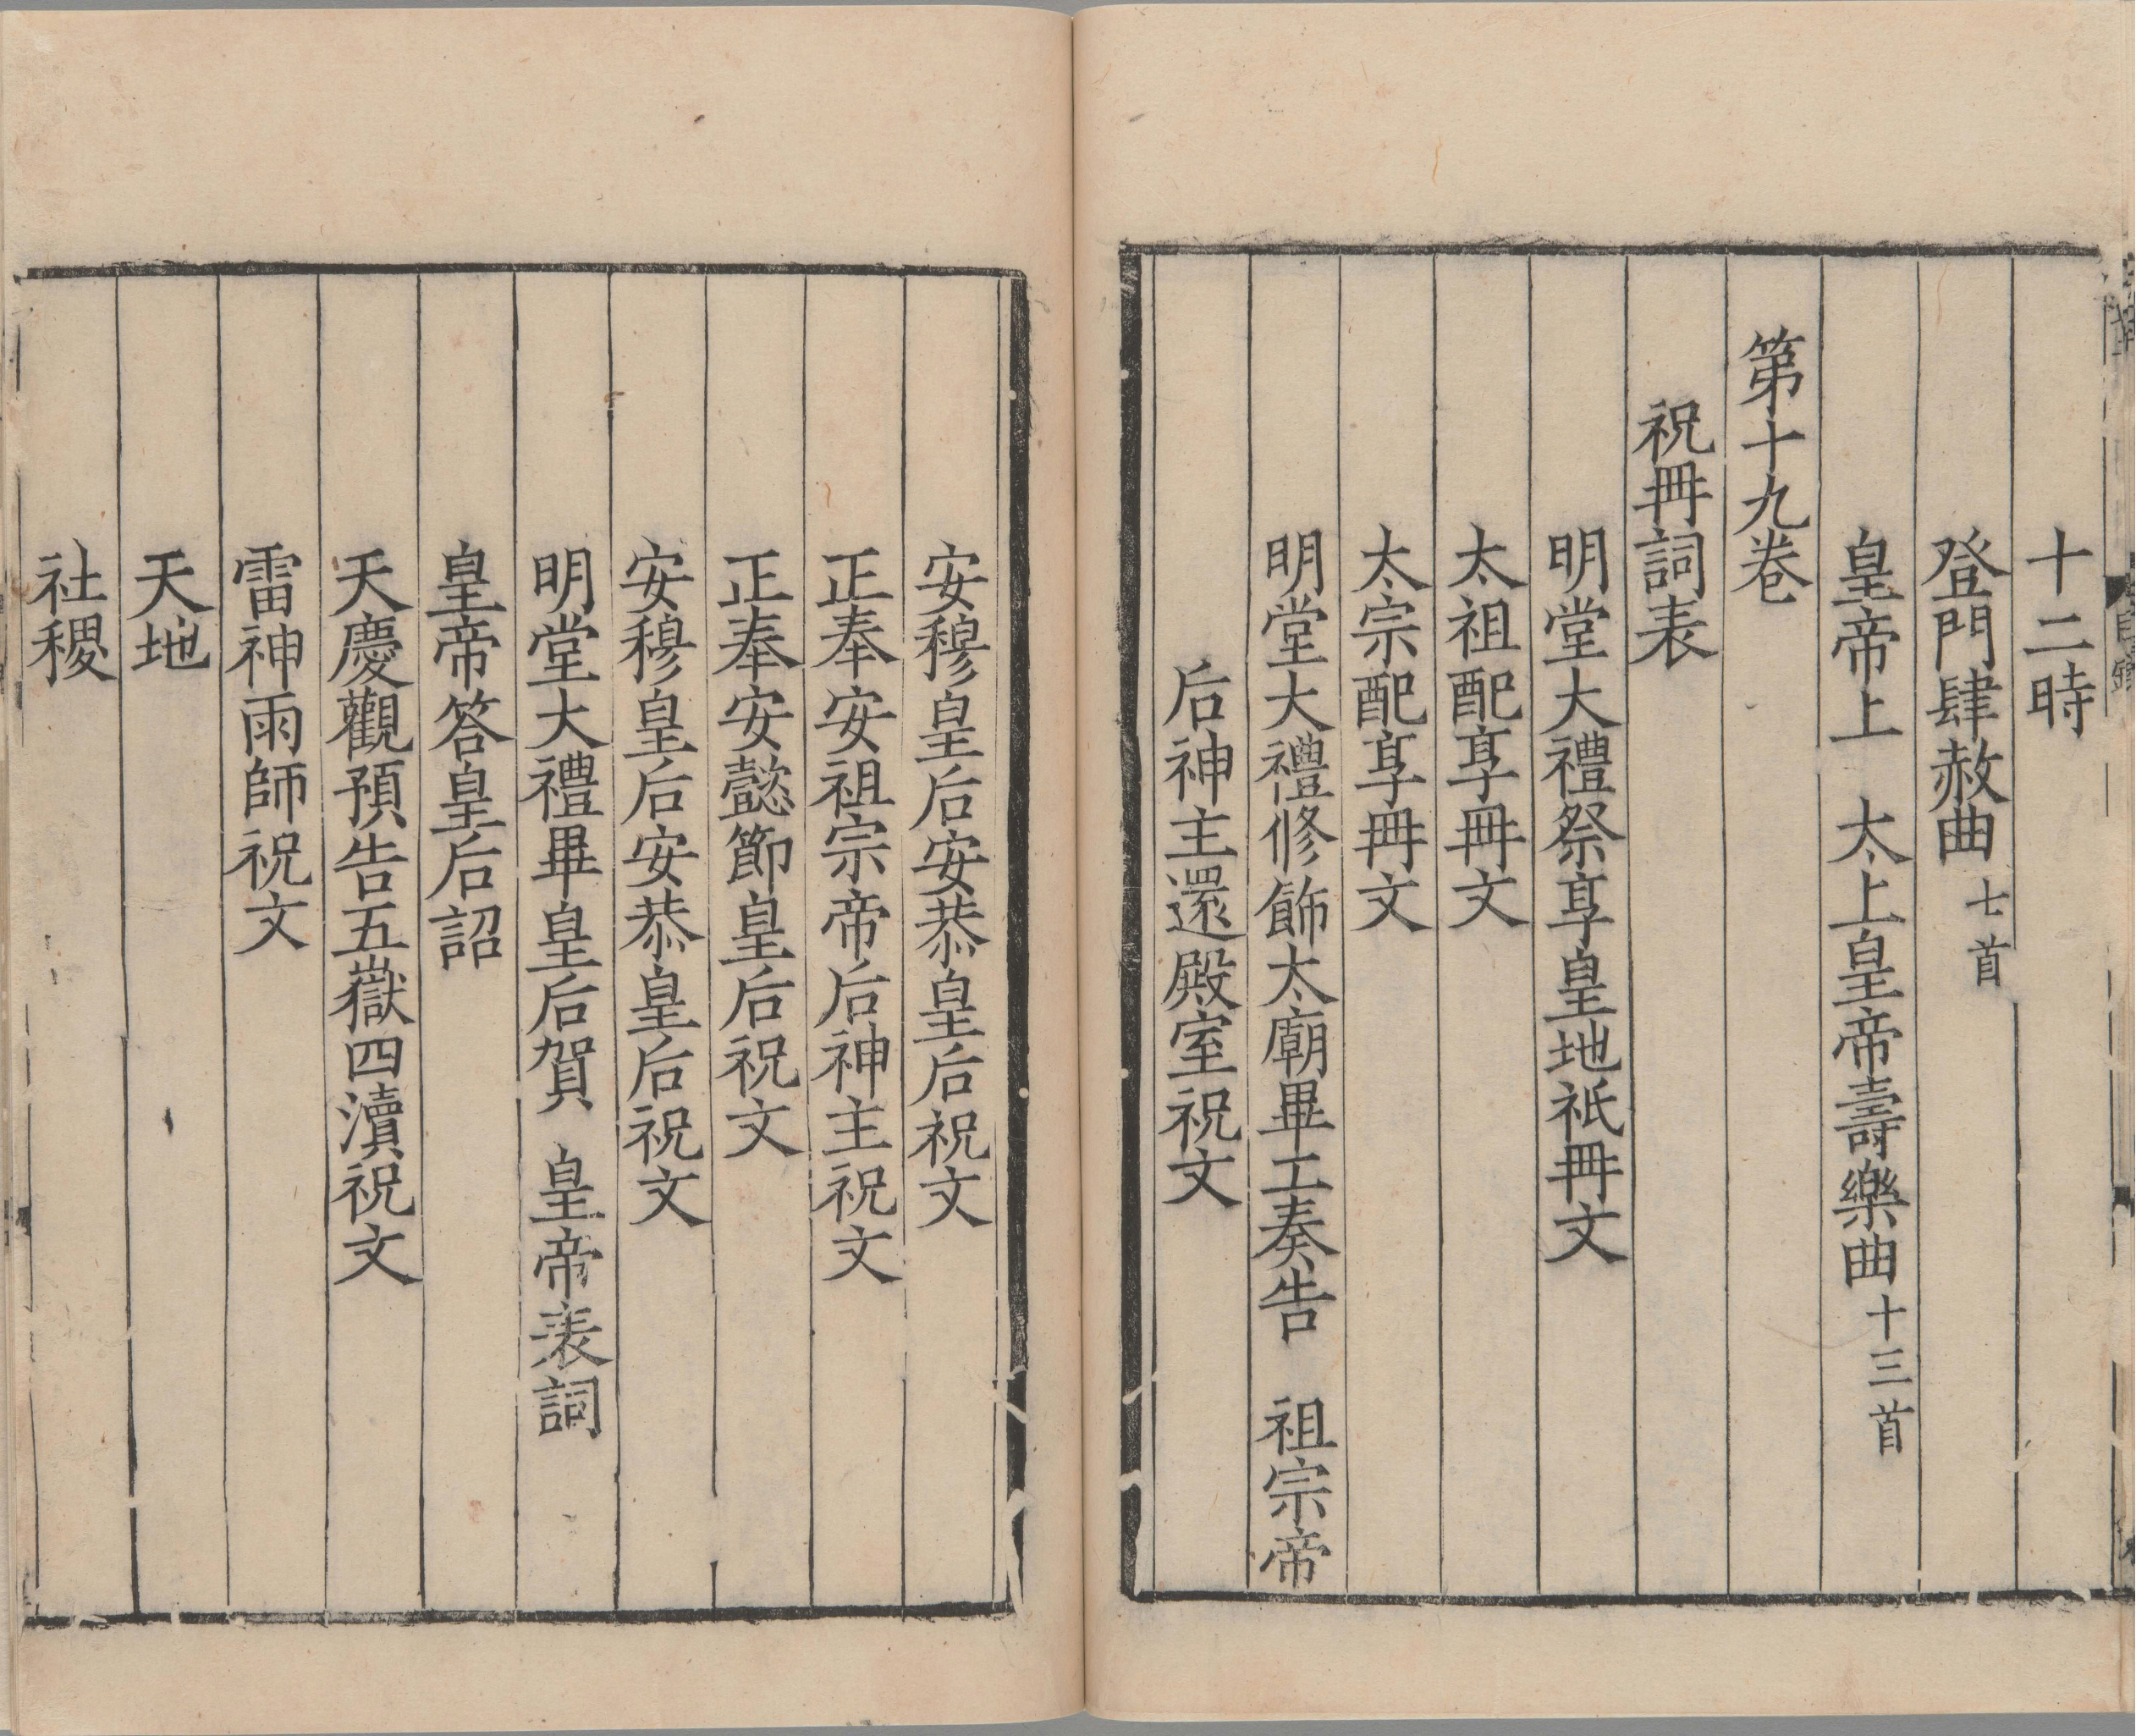 十二時
登門肆赦曲七首
皇帝上　太上皇帝壽樂曲十三首
第十九卷
祝冊詞表
明堂大禮祭享皇地祇冊文
太祖配享冊文
太宗配享冊文
明堂大禮修飾太廟畢工奏告　祖宗帝
后神主還殿室祝文
安穆皇后安恭皇后祝文
正奉安祖宗帝后神主祝文
正奉安懿節皇后祝文
安穆皇后安恭皇后祝文
明堂大禮畢皇后賀　皇帝表詞
皇帝答皇后詔
天慶觀預告五嶽四瀆祝文
雷神雨師祝文
天地
社稷